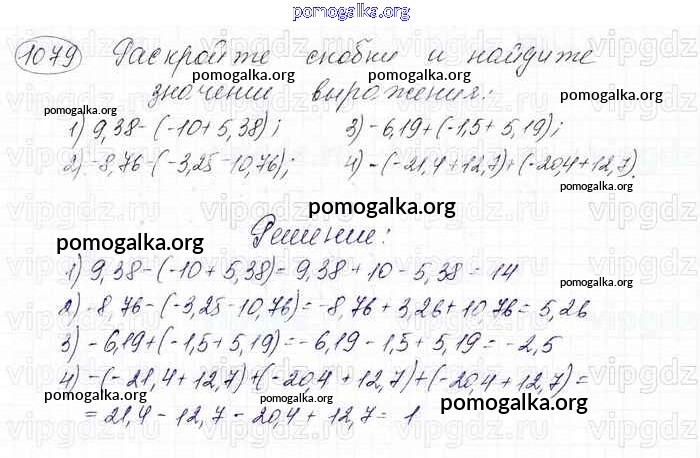 pomogalka.org
1079 Раскройте скобки и найдите
значении выражения:
1) 9,38-(-10+5,38); 3) -6,19+(-1,5+5,19);
2) -8,76-(-3,25-10,76); 4) -(-21,4+12,7)+(-20,4+12,7).
Решение:
1) 9,38-(-10+5,38)=9,38+10-5,38=14
2) -8,76-(-3,25-10,76)=-8,76+3,26+10,76=5,26
3) -6,19+(-1,5+5,19)=-6,19-1,5+5,19=-2,5
4) -(-21,4+12,7)+(-20,4+12,7)+(-20,4+12,7)=
=21,4-12,7-20,4+12,7=1
pomogalka.org
pomogalka.org
pomogalka.org
pomogalka.org
pomogalka.org
pomogalka.org
pomogalka.org
pomogalka.org
pomogalka.org
pomogalka.org
pomogalka.org
pomogalka.org